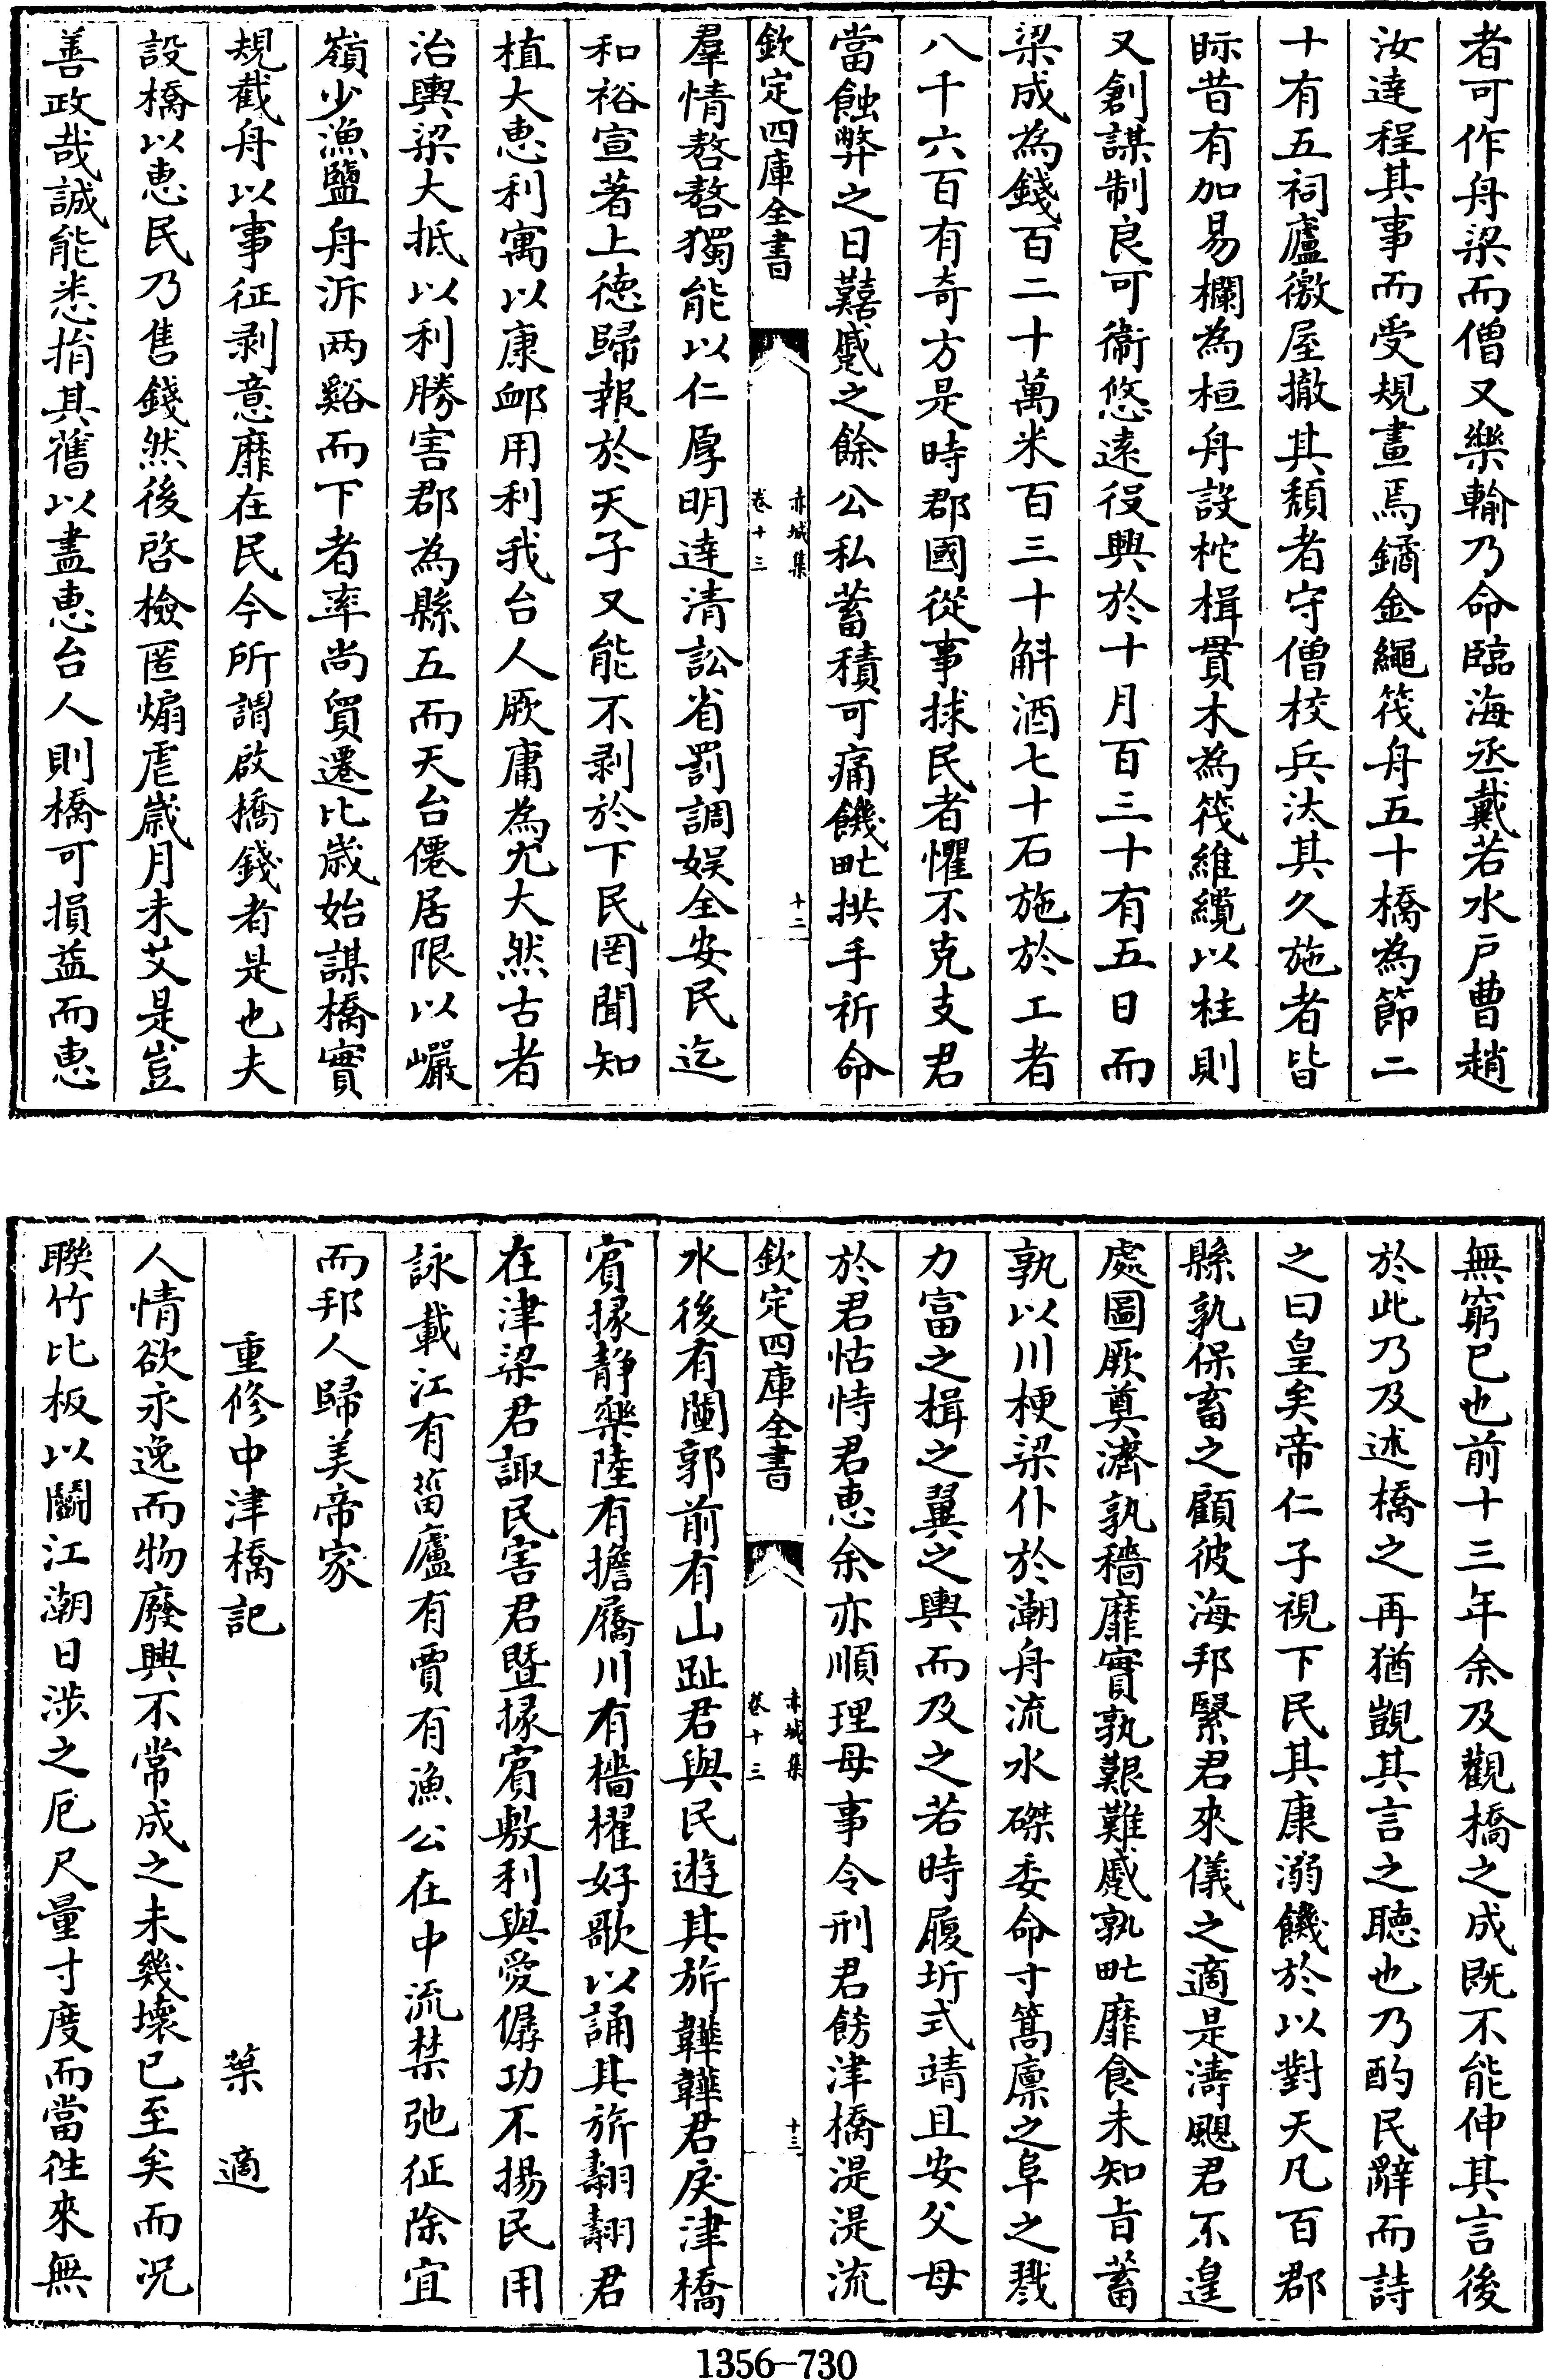 者可作舟梁而僧又樂輸乃命臨海丞戴若水戸曹趙
汝逹程其事而受規畫焉鐍金繩筏舟五十橋為節二
十有五祠廬徼屋撤其頽者守僧校兵汰其久施者皆
眎昔有加易欄為桓舟設柁楫貫木為筏維纜以柱則
又創謀制良可衞悠逺役興於十月百三十有五日而
梁成為錢百二十萬米百三十斛酒七十石施於工者
八千六百有奇方是時郡國從事捄民者懼不克支君
當蝕弊之日囏蹙之餘公私蓄積可痛饑甿拱手祈命
欽定四庫全書
赤城集
卷十三
十二
羣情嗸嗸獨能以仁厚明逹清訟省罰調娱全安民迄
和裕宣著上徳歸報於天子又能不剥於下民罔聞知
植大恵利寓以康䘏用利我台人厥庸為尤大然古者
治輿梁大抵以利勝害郡為縣五而天台僊居限以巗
嶺少漁鹽舟泝两谿而下者率尚貿遷比嵗始謀橋實
規截舟以事征剥意靡在民今所謂啟橋錢者是也夫
設橋以恵民乃售錢然後啓檢匿煽虐嵗月未艾是豈
善政哉誠能悉捐其舊以盡恵台人則橋可損益而恵
無窮已也前十三年余及觀橋之成既不能伸其言後
於此乃及述橋之再猶覬其言之聴也乃酌民辭而詩
之曰皇矣帝仁子視下民其康溺饑於以對天凡百郡
縣孰保畜之顧彼海邦緊君來儀之適是濤颶君不遑
處圖厥奠濟孰穡靡實孰艱難蹙孰甿靡食未知旨蓄
孰以川梗梁仆於潮舟流水磔委命寸篙廪之阜之戮
力富之楫之翼之輿而及之若時履圻式靖且安父母
於君怙恃君恵余亦順理毋事令刑君飭津橋湜湜流
欽定四庫全書
赤城集
卷十三
十三
水後有闉郭前有山趾君與民遊其旂韡韡君戾津橋
賔掾静樂陸有擔屩川有檣櫂好歌以誦其旂翿翿君
在津梁君諏民害君暨掾賔敷利與愛僝功不揚民用
詠載江有菑廬有賈有漁公在中流禁弛征除宜
而邦人歸美帝家
重修中津橋記
葉適
人情欲永逸而物廢興不常成之未幾壊已至矣而况
聨竹比板以鬬江潮日涉之厄尺量寸度而當徃來無